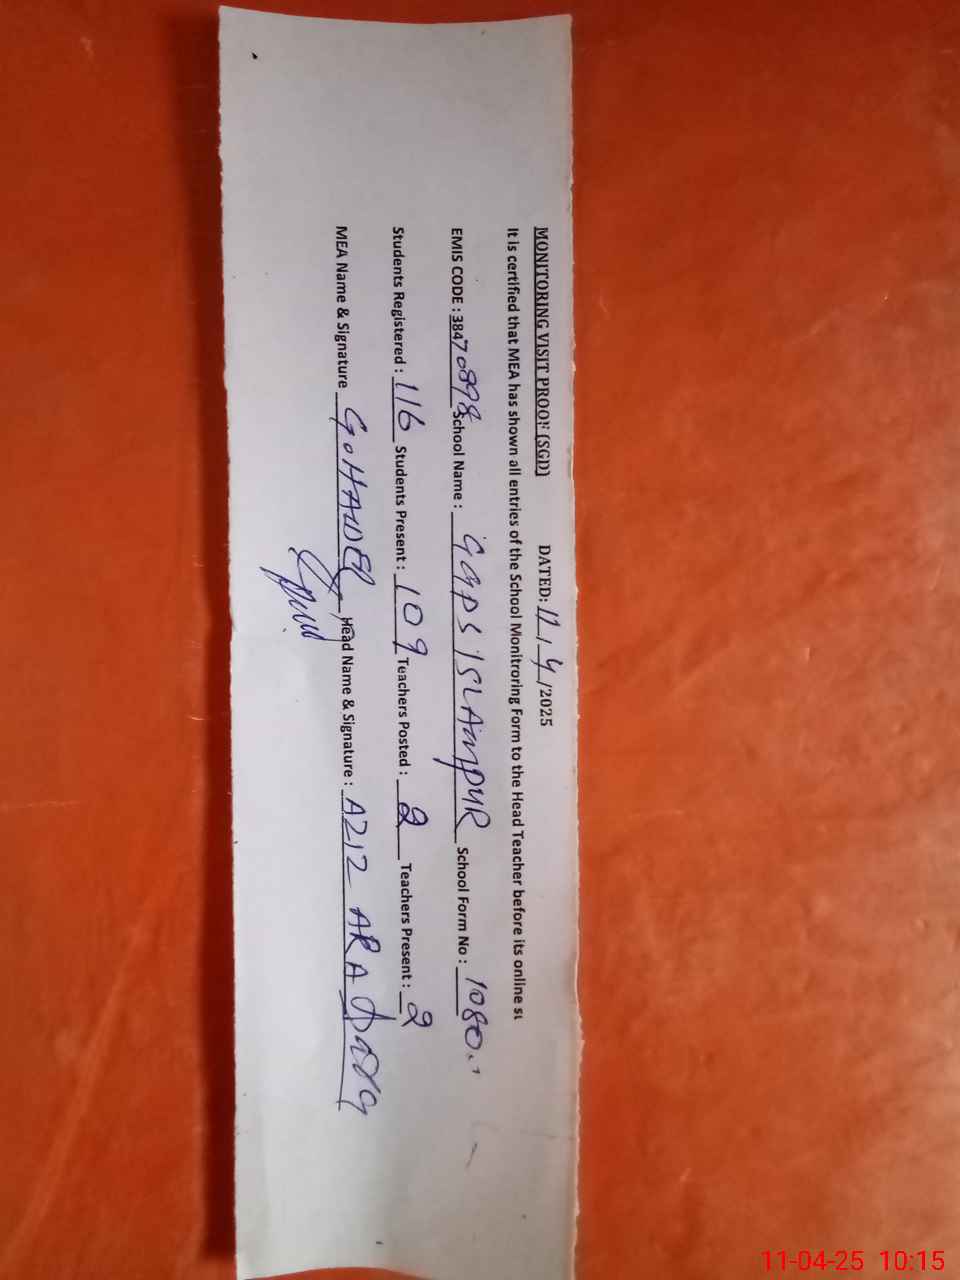 MONITORING VISIT PROOF (SGD) DATED: 11/4/2025
It is certified that MEA has shown all entries of the School Monitroring Form to the Head Teacher before its online su
EMIS CODE : 38470898 School Name : GGPS ISLAMPUR School Form No : 1080
Students Registered : 116 Students Present : 109 Teachers Posted : 2 Teachers Present : 2
MEA Name & Signature GOHAWER Head Name & Signature : AZIZ ARA
11-04-25 10:15